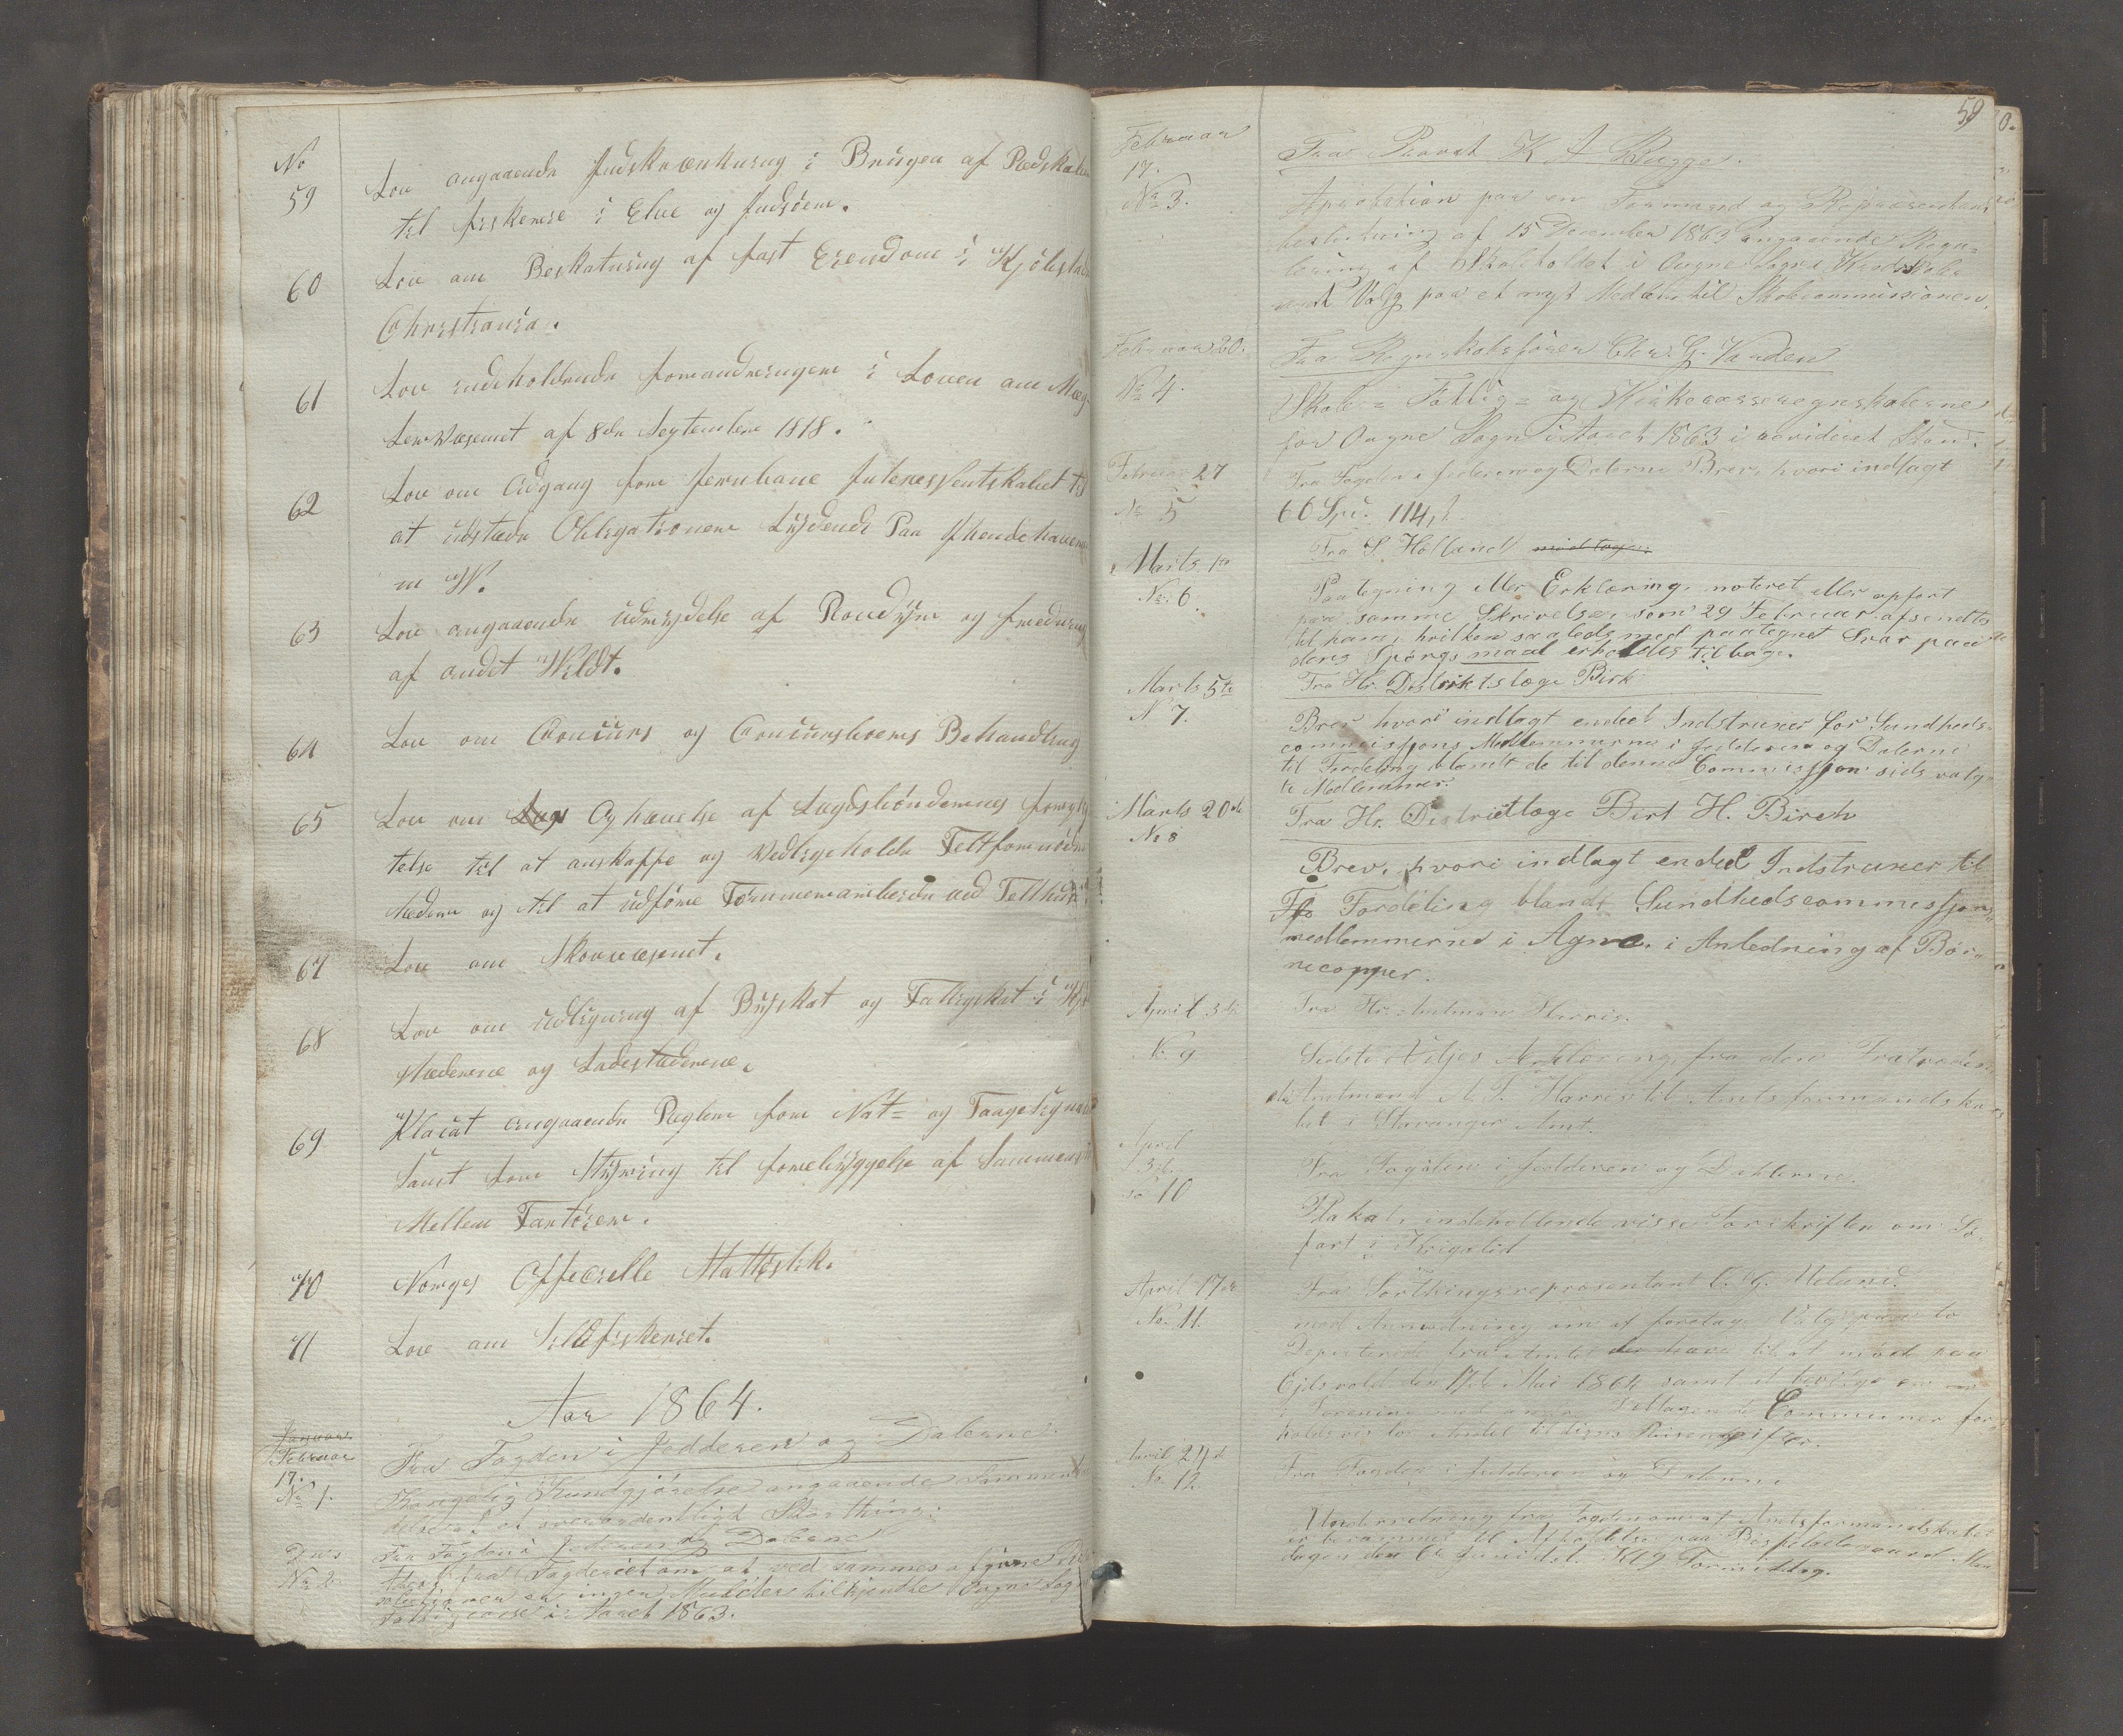 No
59 Lov angaaende Indskrænkning i Brugen af Redskaber
til fiskerie i Elve og Indsøer.
60 Lov om Beskatning af fast Eiendom i Kjøbstad
Christiania.
61 Lov indeholdende forandringer i Loven om Mæg-
lervæsenet af 8de September 1818.
62 Lov om Adgang for Jernbane Interessentskabet til
at udstæde Obligationer Lydende Paa Ihændehaveren
m W.
63 Lov angaaende Udrydelse af Rovdyr og fredning
af andet Wildt.
64 Lov om Concurs og Concursboers Behandling
65 Lov om Ophævelse af Lægdsbøndernes forpligt
telse til at anskaffe og Vedligeholde Feltfornøden
hederne og til at udføre Tømmermandarbeide ved
67 Lov om Skovvæsenet.
68 Lov om udligning af Byskat og Fattigskat i Kjøb
stæderne og Ladestæderne.
69 Placat angaaende Regler for Nat= og Taagesignaler
Samt for Styring til forebyggelse af Sammenstød
Mellem Fartøier.
70 Norges Officielle Stattistik.
71 Lov om Sildfiskeriet.
Aar 1864.
Januar
Februar
17.
No 1.
Fra Fogden i Jedderen og Dalerne.
Kongelig Kundgjørelse angaaende Sammenkal
delse af et overordentligt Storthing.
Ds
No 2
Fra Fogden i Jederen og Dalerne
fra Fogderiet om at ved sammes afgivne Re
solutioner er ingen Mulcter tilkjendte Ougne Sogns
Fattigcasse i Aaret 1863.
59
Februar
17.
No 3.
Fra Provst K A Bugge.
Aprobation paa en Formand og Repræsentant
beslutning af 15 December 1863 angaaende Regu=
lering af Skoleholdet i Ougne Sogns
samt Valg paa et nyt Medlem til Skolecommissionen.
Februar 20.
No 4.
Fra Regnskabsfører Chr. G. Varden
Skole= Fattig= og Kirkecasseregnskaberne
for Ougne Sogn i Aaret 1863 i revideret Stand.
Februar 27
No 5
Fra Fogden i Jederen og Dalerne Brev, hvori indlagt
60 Spd. 114 s.
Marts 1te
No. 6.
Fra S. Hølland modtaget
Paategning eller Erklæring, noteret eller opført
paa samme Skrivelse, som 29 Februar afsendtes
til ham, hvilken saaledes med paategnet Svar paa
dens Spørgsmaal erholdes tilbage.
Marts 5te
N 7.
Fra Hr. Distriktslæge Birk
Brev hvori indlagt endeel Indstruxer for Sundheds-
commissions Medlemmerne i Jedderen og Dalerne
til Fordeling blandt de til denne Commission sids valg-
te Medlemmer.
Marts 20de
No 8
Fra Hr. Districtlæge Birt H. Birch
Brev, hvori indlagt endeel Indstruxer til
Fo Fordeling blandt Sundhedscommissions
medlemmerne i Agne, i Anledning af Bør-
necopper.
April 3de
No 9
Fra Hr. Amtmand Harris.
Sidste Viljes Erklæring, fra den Fratrædende
Amtmand A. S. Harris til Amtsformandskab
bet i Stavanger Amt.
April
3de
No 10
Fra Fogden i Jedderen og Dahlerne.
Plakat, indeholdende visse Forskrifter om Sø-
fart i Krigstid
April 17de
No. 11.
Fra Storthingsrepræsentant C. G. Meland.
med Anmodning om at foretage Valg paa to
Deputerede fra Amtet der have til at møde paa
Ejdsvold den 17de Mai 1864 samt at bevilge en
i Forening med andre Deltagende Communer for
holdsvis lov Andel til deres Reiseudgifter.
April 24de
No. 12
Fra Fogden i Jedderen og Dalerne
Underretning fra Fogden om at Amtsformandskabet
er berammet til Afholdelse paa Bispeladegaard Man
dagen den 6te Juni d.A. Kl 9 Formiddag.